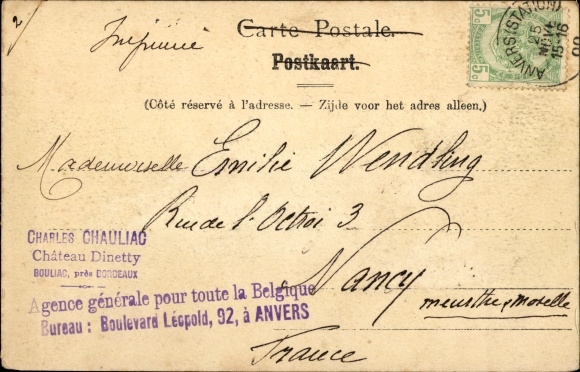 2
Imprimé
Carte Postale.
Postkaart.
(Côté réservé à l'adresse. — Zijde voor het adres alleen.)
5c 5c
ANVERS (STATION)
25
15-16
00
Mademoiselle Emilie Wendling
Rue de l'Octroi 3
Nancy
meurthe & moselle
France
CHARLES CHAULIAC
Château Dinetty
BOULIAC, près BORDEAUX
Agence générale pour toute la Belgique
Bureau : Boulevard Léopold, 92, à ANVERS